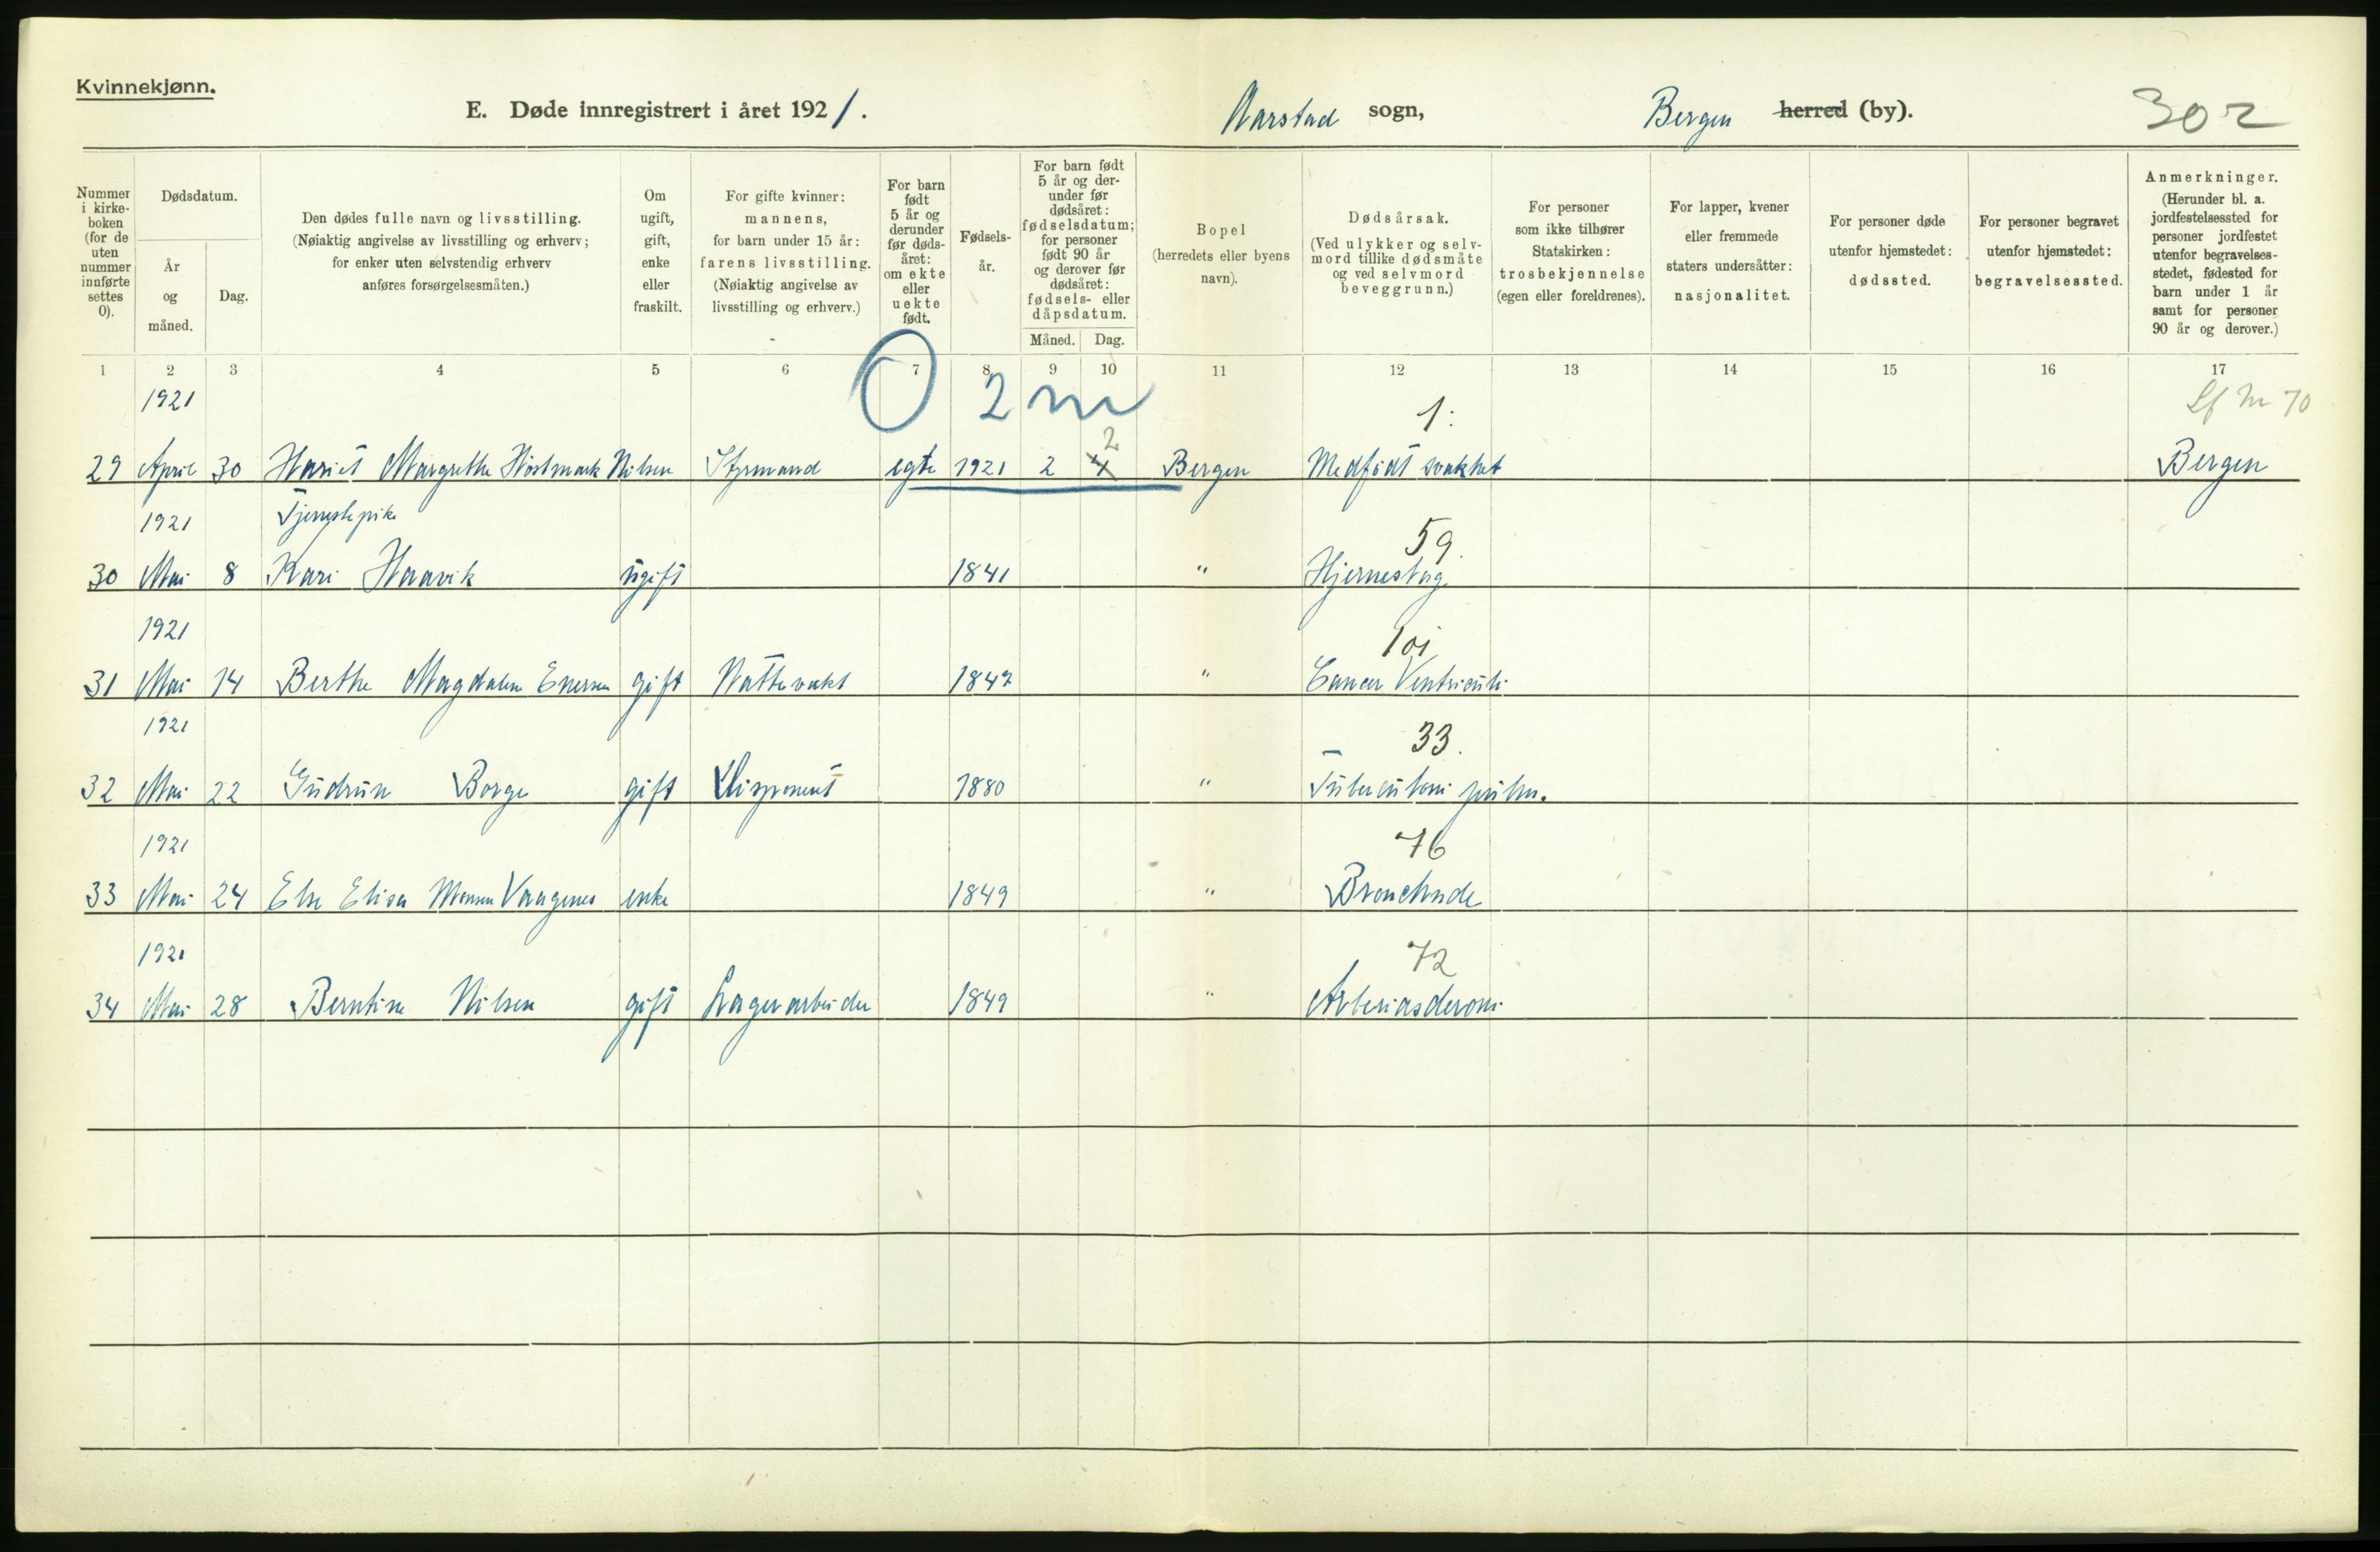 Kvinnekjønn.
E. Døde innregistrert i året 1921. Aarstad sogn, Bergen herred (by). 302
Nummer i kirke- boken (for de uten nummer innførte settes 0).
Dødsdatum.
År og måned.
Dag.
Den dødes fulle navn og livsstilling.
(Nøiaktig angivelse av livsstilling og erhverv;
for enker uten selvstendig erhverv
anføres forsørgelsesmåten.)
Om ugift, gift, enke eller fraskilt.
For gifte kvinner:
mannens,
for barn under 15 år:
farens livsstilling.
(Nøiaktig angivelse av
livsstilling og erhverv.)
For barn født 5 år og derunder før døds- året: om ekte eller uekte født.
Fødsels- år.
For barn født 5 år og der- under før dødsåret: fødselsdatum; for personer født 90 år og derover før dødsåret: fødsels- eller dåpsdatum.
Måned. Dag.
Bopel
(herredets eller byens
navn).
Dødsårsak.
(Ved ulykker og selv-
mord tillike dødsmåte
og ved selvmord
beveggrunn.)
For personer
som ikke tilhører
Statskirken:
trosbekjennelse
(egen eller foreldrenes).
For lapper, kvener
eller fremmede
staters undersåtter:
nasjonalitet.
For personer døde
utenfor hjemstedet:
dødssted.
For personer begravet
utenfor hjemstedet:
begravelsessted.
Anmerkninger.
(Herunder bl. a.
jordfestelsessted for
personer jordfestet
utenfor begravelses-
stedet, fødested for
barn under 1 år
samt for personer
90 år og derover.)
1 2 3 4 5 6 7 8 9 10 11 12 13 14 15 16 17
1921 0 2 m 1: Lf Nr 70
2
29 April 30 Hariet Margrethe Hostmark Nilsen Styrmand egte 1921 2 4 Bergen Medfødt svakhet Bergen
1921 Tjenestepike 59.
30 Mai 8 Kari Haavik ugift 1841 " Hjerneslag
1921 101
31 Mai 14 Berthe Magdalen Enersen gift Nattevakt 1849 " Cancer Ventriculi
1921 33.
32 Mai 22 Gudrun Borge gift Disponent 1880 " Tuberculosis pulm.
1921 76
33 Mai 24 Else Elisa Monsen Vaagenes enke 1849 "
1921 72
34 Mai 28 Berntine Nilsen gift Lagerarbeider 1849 "